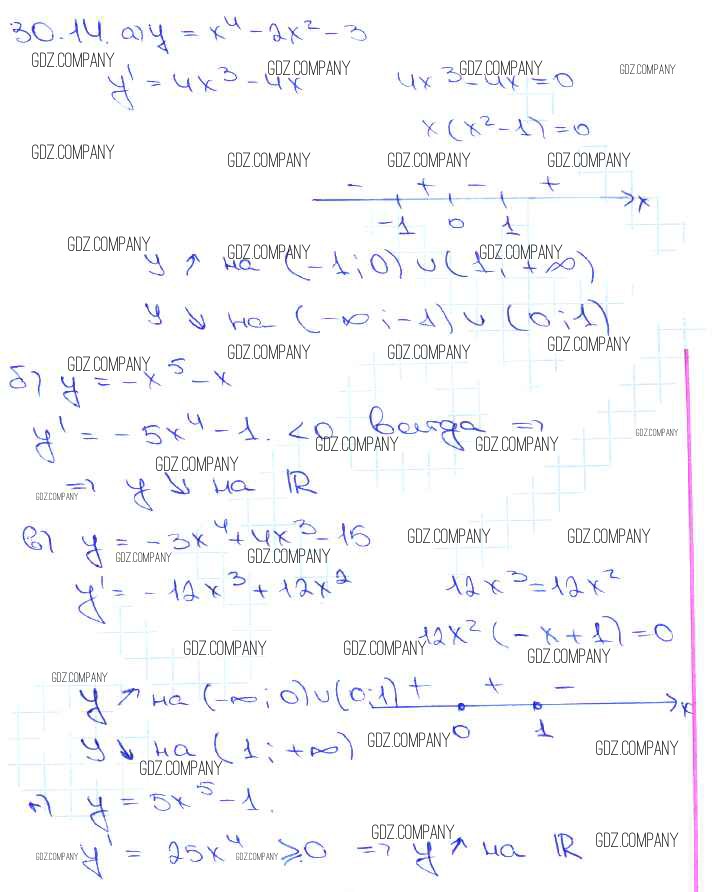 30.14. а) y = x⁴ - 2x² - 3
GDZ.COMPANY
y' = 4x³ - 4x 4x³ - 4x = 0
GDZ.COMPANY GDZ.COMPANY GDZ.COMPANY
x(x² - 1) = 0
GDZ.COMPANY GDZ.COMPANY GDZ.COMPANY GDZ.COMPANY
- + - +
-1 0 1 x
GDZ.COMPANY GDZ.COMPANY GDZ.COMPANY
y ↗ на (-1; 0) ∪ (1; +∞)
y ↘ на (-∞; -1) ∪ (0; 1)
GDZ.COMPANY GDZ.COMPANY GDZ.COMPANY GDZ.COMPANY
б) y = -x⁵ - x
y' = -5x⁴ - 1. < 0 всегда =>
GDZ.COMPANY GDZ.COMPANY GDZ.COMPANY
GDZ.COMPANY
=> y ↘ на ℝ
GDZ.COMPANY
в) y = -3x⁴ + 4x³ - 15
GDZ.COMPANY GDZ.COMPANY GDZ.COMPANY GDZ.COMPANY
y' = -12x³ + 12x² 12x³ = 12x²
12x²(-x + 1) = 0
GDZ.COMPANY GDZ.COMPANY GDZ.COMPANY
GDZ.COMPANY
y ↗ на (-∞; 0) ∪ (0; 1) + + -
0 1 x
y ↘ на (1; +∞)
GDZ.COMPANY GDZ.COMPANY
GDZ.COMPANY
г) y = 5x⁵ - 1.
GDZ.COMPANY GDZ.COMPANY
y' = 25x⁴ ≥ 0 => y ↗ на ℝ
GDZ.COMPANY GDZ.COMPANY